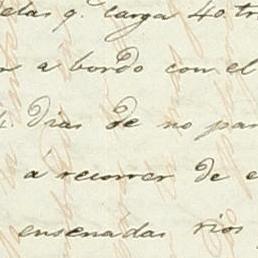 elas q.e carga 40. tr
a bordo con el
dias de no pa
á recorrer de e
ensenadas rios